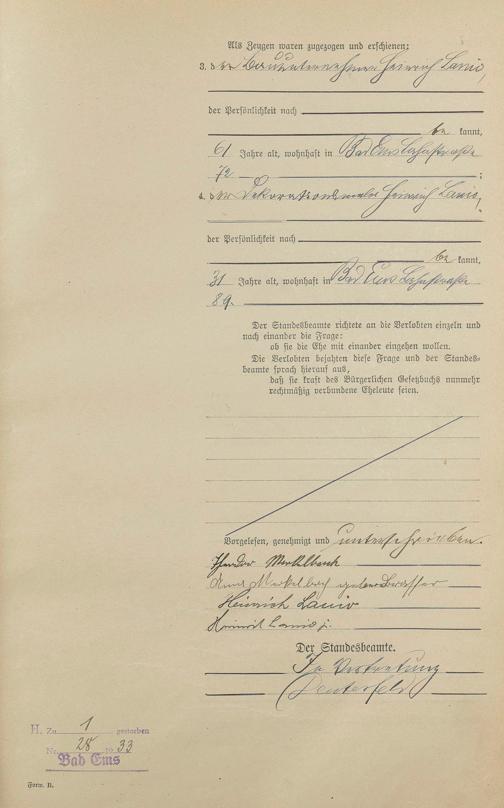 Als Zeugen waren zugezogen und erschienen:
3. der Bauunternehmer Heinrich Lanio,
der Persönlichkeit nach
be kannt,
61 Jahre alt, wohnhaft in Bad Ems Lahnstraße
72 ;
4. der Dekorationsmaler Heinrich Lanio,
der Persönlichkeit nach
be kannt,
31 Jahre alt, wohnhaft in Bad Ems Lahnstraße
89.
Der Standesbeamte richtete an die Verlobten einzeln und
nach einander die Frage:
ob sie die Ehe mit einander eingehen wollen.
Die Verlobten bejahten diese Frage und der Standes-
beamte sprach hierauf aus,
daß sie kraft des Bürgerlichen Gesetzbuchs nunmehr
rechtmäßig verbundene Eheleute seien.
Vorgelesen, genehmigt und unterschrieben.
Theodor Merkelbach
Anna Merkelbach geborene
Heinrich Lanio
Heinrich Lanio j.
Der Standesbeamte.
In Vertretung
H. Zu 1 gestorben
Nr. 28 19 33
Bad Ems
Form. B.